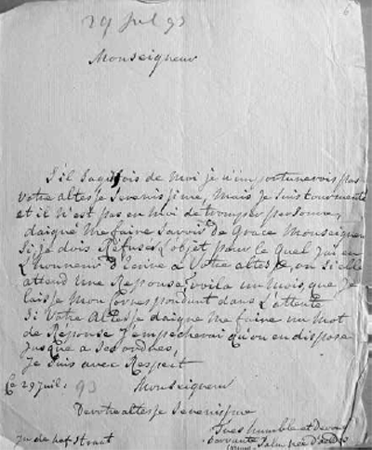 29 Jul 93
6
Monseigneur
S'il s'agissois de Moi je n'importunerois pas
Votre altesse Serenissime, Mais Je Suis tourmenté
et il N'est pas en Moi de tromper personne,
daigné Me faire Savoir de Grace Monseigneur
Si je dois Refuser L'objet pour le quel J'ai eu
L'honneur d'Ecrire a Votre altesse, on
attend une Reponse, voila un Mois, que Je
laisse Mon Correspondant dans L'attente
Si Votre Altesse daigne Me faire un Mot
de Réponse J'empecherai qu'on en dispose
Jusque a Ses ordres,
Je Suis avec Respect
Ce 29 Juil. 93 Monseigneur
De votre altesse Serenissime
tres humble et
Servante